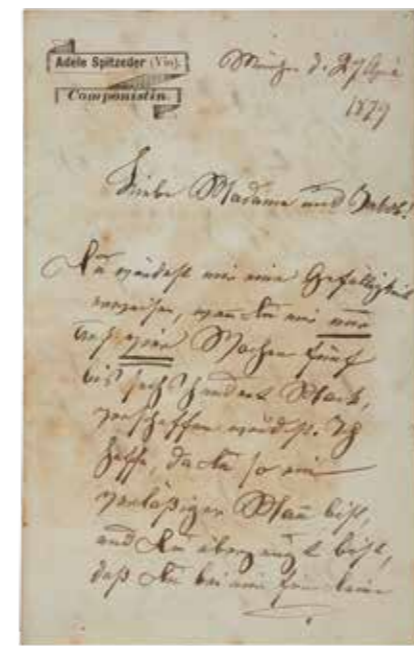 Adele Spitzeder (Vio).
Componistin.
München d. 27 April
1879
Liebe Madame und Jakob!
Du würdest mir eine Gefälligkeit
erweisen, wen Du mir nur
auf vier Wochen fünf
bis sechs hundert Mark,
verschaffen würdest. Ich
hoffe, da Du so ein
verläßiger Man bist,
und Du überzeugt bist,
daß Du bei mir keine